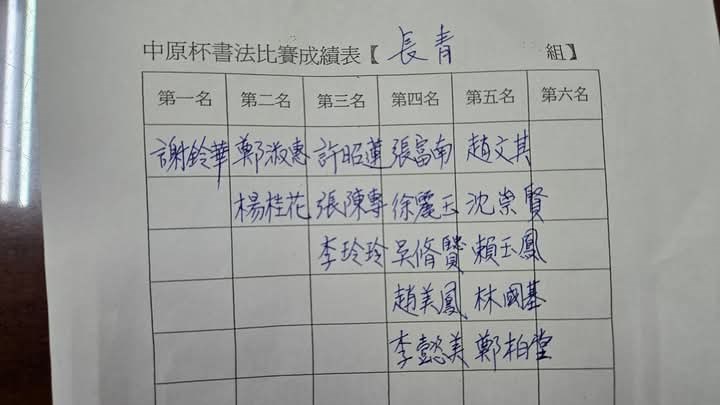 中原杯書法比賽成績表【長青 組】
第一名 第二名 第三名 第四名 第五名 第六名
謝鈴華 鄭淑惠 許昭蓮 張富南 趙文其
楊桂花 張陳專 徐震玉 沈崇賢
李玲玲 吳脩賢 賴玉鳳
趙美鳳 林國基
李懿美 鄭柏堂